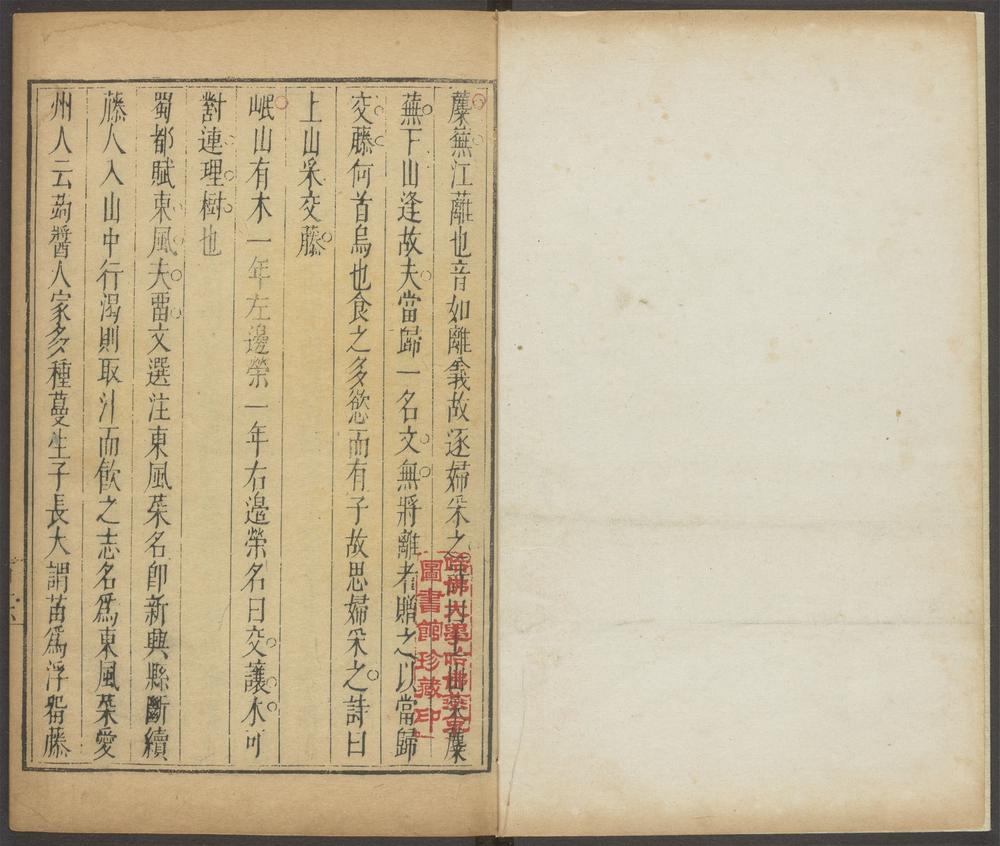 蘪蕪江蘺也音如離義故逐婦采之詩曰上山采蘪
蕪下山逢故夫當歸一名文無將離者贈之以當歸
交藤何首烏也食之多慾而有子故思婦采之詩曰
上山采交藤
岷山有木一年左邊榮一年右邊榮名曰交讓木可
對連理樹也
蜀都賦東風夫畱文選注東風菜名卽新興縣斷續
藤人入山中行渴則取汁而飮之志名爲東風菜愛
州人云蒟醬人家多種蔓生子長大謂苗爲浮畱藤
哈佛大學哈佛燕京
圖書館珍藏印